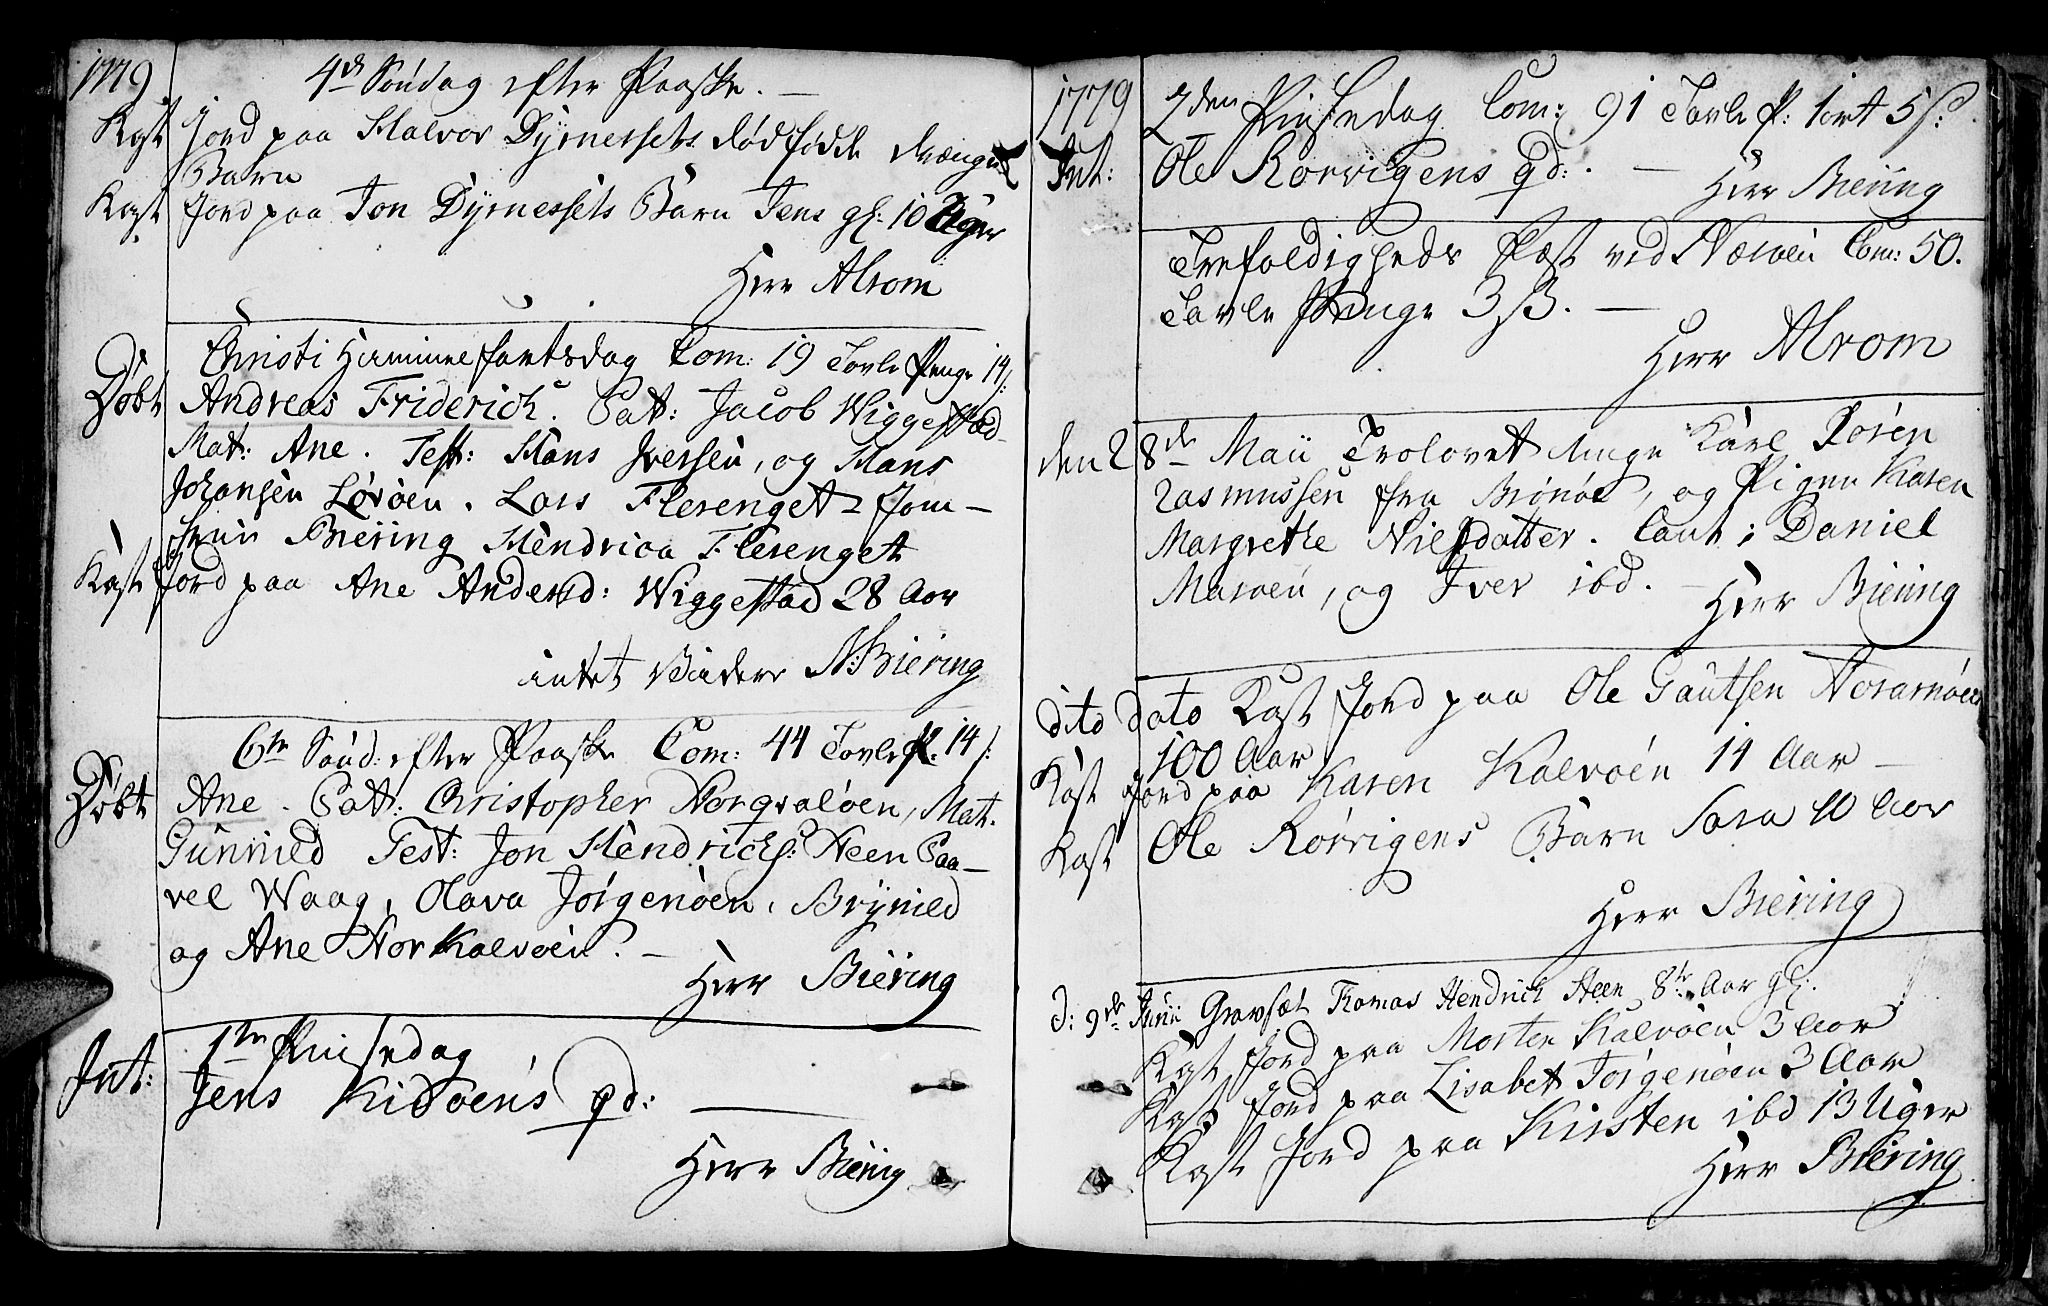 1779
4de Søndag efter Paaske. —
Kast Jord paa Halvor Dyrnessets dødfødde drænge
Barn
Kast Jord paa Jon Dyrnessets Barn Jens gl: 10 Uger
Herr Alrom
Christi Himmelfartsdag Com: 19 Tavle Penge 14 s:
Døbt Andreas Friderich. Pat: Jacob Wiggestad
Mat: Ane. Test: Hans Iversen, og Hans
Johansen Lørøen. Lars Flerenget Jom-
frue Biering Hendrica Flerenget
Kast Jord paa Ane Andersd: Wiggestad 28 Aar
intet videre N: Biering
6te Sønd: efter Paaske Com: 44 Tavle P: 14 s:
Døbt Ane. Pat: Christopher Norqvaløen, Mat.
Gunnild Test: Jon Hendrichs: Heen Paa-
vel Waag, Olava Jørgenøen, Brynild
og Ane Norkalvøen. —
Herr Biering
1te Pinsedag
Int: Jens Kidøens qd: —
Herr Biering
1779
2den Pinsedag Com: 91 Tavle P: 1 ort 5 s:
Int: Ole Rørvigens qd: . —
Herr Biering
Trefoldigheds Fæst ved Næsøen Com: 50.
Tavle Penge 3 s. —
Herr Alrom
den 28de Maii Trolovet unge Karl Søren
Rasmussen fra Brønøe, og Pigen Karen
Margrethe Nielsdatter. Caut: Daniel
Marøen, og Iver ibd. —
Herr Biering
dito dato Kast Jord paa Ole Gautsen Norarnøen
100 Aar
Kast Jord paa Karen Kalvøen 14 Aar —
Kast Ole Rørvigens Barn Sara 10 Aar
Herr Biering
d: 9de Junii Gravsæt Thomas Hendrich Heen 8te Aar gl:
Kast Jord paa Morten Kalvøen 3 Aar
Kast Jord paa Lisabet Jørgenøen 3 Aar
Kast Jord paa Kirsten ibd 13 Uger
Herr Biering